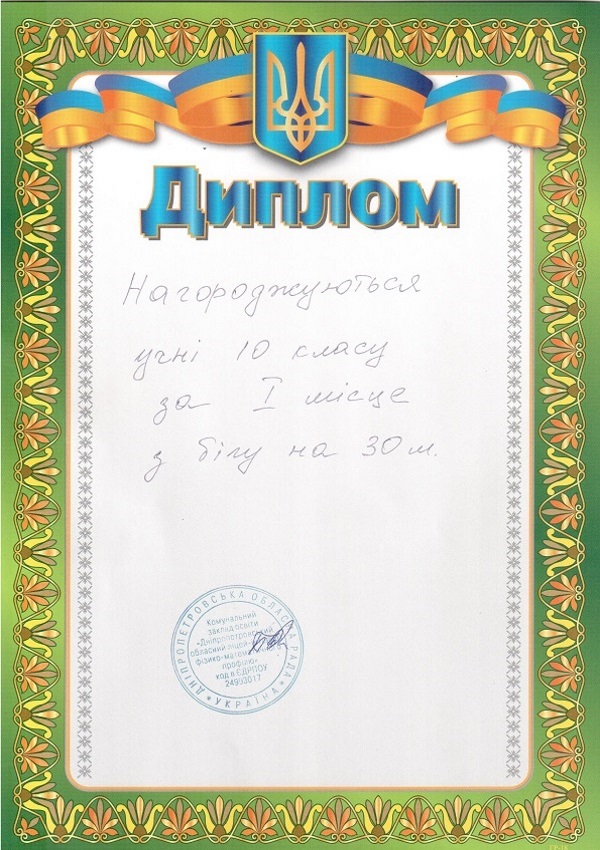 Диплом
Нагороджуються
учні 10 класу
за I місце
з бігу на 30 м.
ДНІПРОПЕТРОВСЬКА ОБЛАСНА РАДА
Комунальний
заклад освіти
«Дніпропетровський
обласний ліцей-
фізико-матем
профілю»
код в ЄДРПОУ
24993017
* УКРАЇНА *